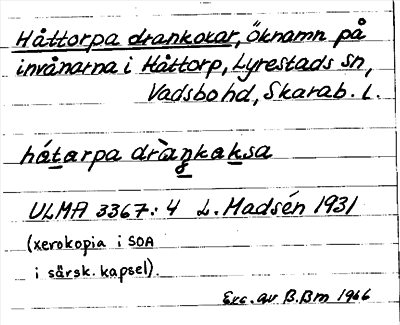 Håttorpa drankoxar, Öknamn på
invånarna i Håttorp, Lyrestads sn,
Vadsbo hd, Skarab. l.
hátarpa dràŋkaksa
ULMA 3367: 4 L. Madsén 1931
(xerokopia i SOA
i särsk. kapsel).
Exc. av B.Bm 1966